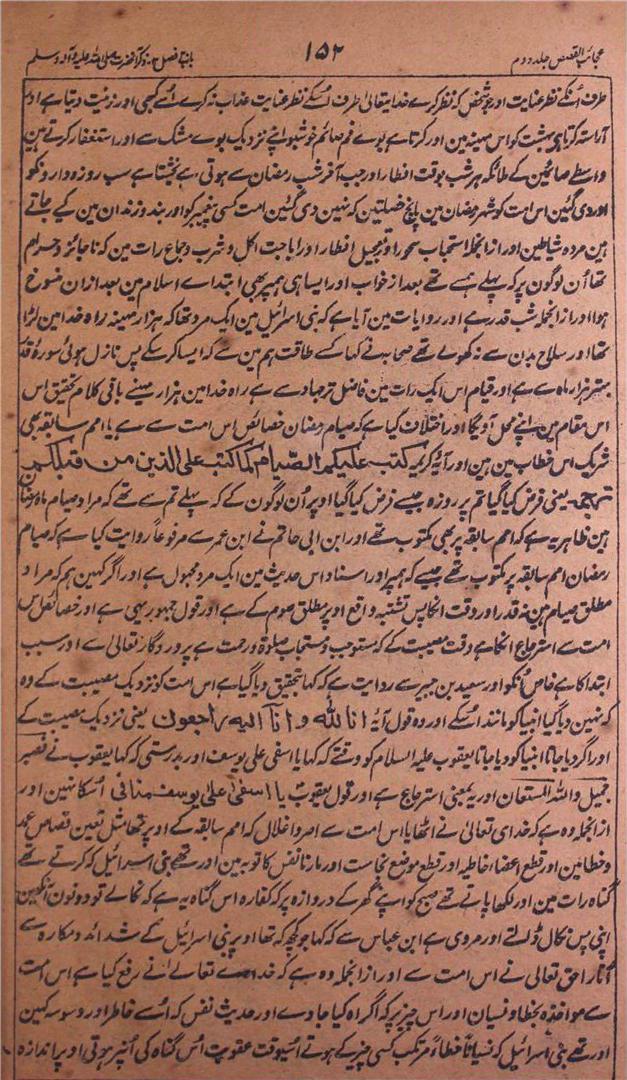 عجائب القصص جلد دوم ۱۵۲ باب فصل ذکر آنحضرت صلی اللہ علیہ وآلہ وسلم
طرف اُنکے نظر عنایت اور جو شخص کہ نظر کرے خدایتعالیٰ طرف اُسکے نظر عنایت عذاب نہ کرے اُسے کبھی اور زینت دیتا ہے اور
آراستہ کرتا ہی بہشت کو اس مہینہ مین اور کرتا ہے بوے فم صائم خوشبو اپنے نزدیک بوے مشک سے اور استغفار کرتے ہین
واسطے صائمین کے ملائکہ ہر شب بوقت افطار اور جب آخر شب رمضان سے ہوتی ہے بخشتا ہے سب روزہ دارونکو
اور دی گئین اس امت کو شہر رمضان مین پانچ خصلتین کہ نہین دی گئین امت کسی پیغمبر کو اور بند و زندان مین کیے جاتے
ہین مردہ شیاطین اور از انجملہ استحباب سحور اور تعجیل افطار اور اباحت اکل و شرب و جماع رات مین کہ ناجائز و حرام
تھا اُن لوگون پر کہ پہلے ہمسے تھے بعد از خواب اور ایسا ہی ہمپر بھی ابتداے اسلام مین بعد ازان منسوخ
ہوا اور از انجملہ شب قدر ہے اور روایات مین آیا ہے کہ بنی اسرائیل مین ایک مرد تھا کہ ہزار مہینہ راہ خدا مین لڑا
تھا اور سلاح بدن سے نہ کھولے تھے صحابہ نے کہا کسے طاقت ہم مین سے کہ ایسا کر سکے پس نازل ہوئی سورۂ قدر
بہتر ہزار ماہ سے ہے اور قیام اس ایک رات مین فاضل تر جہاد سے ہے راہ خدا مین ہزار مہینے باقی کلام تحقیق اس
اس مقام مین اپنے محل آویگا اور اختلاف کیا ہے کہ صیام رمضان خصائص اس امت سے ہے یا امم سابقہ بھی
شریک اس خطاب مین ہین اور آیۂ کریمہ کتب علیکم الصیام کما کتب علی الذین من قبلکم
ترجمہ یعنی فرض کیا گیا تم پر روزہ جیسے فرض کیا گیا اوپر اُن لوگون کے کہ پہلے تم سے تھے کہ مراد صیام ماہ رمضان
ہین ظاہر یہ ہے کہ امم سابقہ پر بھی مکتوب تھے اور ابن ابی حاتم نے ابن عمر سے مرفوعاً روایت کیا ہے کہ صیام
رمضان امم سابقہ پر مکتوب تھے جیسے کہ ہمپر اور اسناد اس حدیث مین ایک مرد مجہول ہے اور اگر کہین ہم کہ مراد
مطلق صیام ہین نہ قدر اور وقت انکا پس تشبیہ واقع اوپر مطلق صوم کے ہے اور قول جمہور یہی ہے اور خصائص اس
امت سے استرجاع انکا ہے وقت مصیبت کے کہ مستوجب مستجاب صلوۃ و رحمت ہے پروردگار تعالیٰ سے اور سبب
ابتدا کا ہے خاص انکو اور سعید بن جبیر سے روایت ہے کہ کہا بتحقیق دیا گیا ہے اس امت کو نزدیک مصیبت کے وہ
کہ نہین دیا گیا انبیا کو مانند اُسکے اور وہ قول آیۂ انا للہ و انا الیہ راجعون یعنی نزدیک مصیبت کے
اور اگر دیا جاتا انبیا کو دیا جاتا یعقوب علیہ السلام کو وقتے کہ کہا یا اسفی علی یوسف اور بدرستی کہ کہا یعقوب نے فصبر
جمیل واللہ المستعان اور یہ بمعنی استرجاع ہے اور قول یعقوب یا اسفی علی یوسف منافی اُسکا نہین اور
از انجملہ وہ ہے کہ خدای تعالیٰ نے اٹھایا اس امت سے اصر و اغلال کہ امم سابقہ کے اوپر تھا مثل تعین قصاص عمد
و خطا مین اور قطع اعضاء خاطیہ اور قطع موضع نجاست اور مارنا نفس کا توبہ مین اور تھے بنی اسرائیل کہ کرتے تھے
گناہ رات مین اور لکھا پاتے تھے صبح کو اپنے گھر کے دروازہ پر کہ کفارہ اس گناہ یہ ہے کہ نکالے تو دونون آنکھین
اپنی پس نکال ڈالتے اور مروی ہے ابن عباس سے کہ کہا جو کچھ کہ تھا اوپر بنی اسرائیل کے شدائد و مکارہ سے
اُتارا حق تعالی نے اس امت سے اور از انجملہ وہ ہے کہ خداے تعالے نے رفع کیا ہے اس امت
سے مواخذہ بخطا و نسیان اور اس چیز پر کہ اگراہ کیا جاوے اور حدیث نفس کہ اُسے خاطر اور وسوسہ کہین
اور تھے بنی اسرائیل کہ نسیاناً خطاءً مرتکب کسی چیز کے ہوتے اُسیوقت عقوبت اُس گناہ کی اُنپر ہوتی اوپر اندازہ